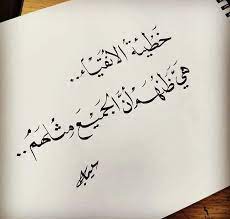 خَطِيئَةُ الأَنْقِيَاءِ..
هِيَ ظَنُّهُمْ أَنَّ الجَمِيْعَ مِثْلَهُمْ..